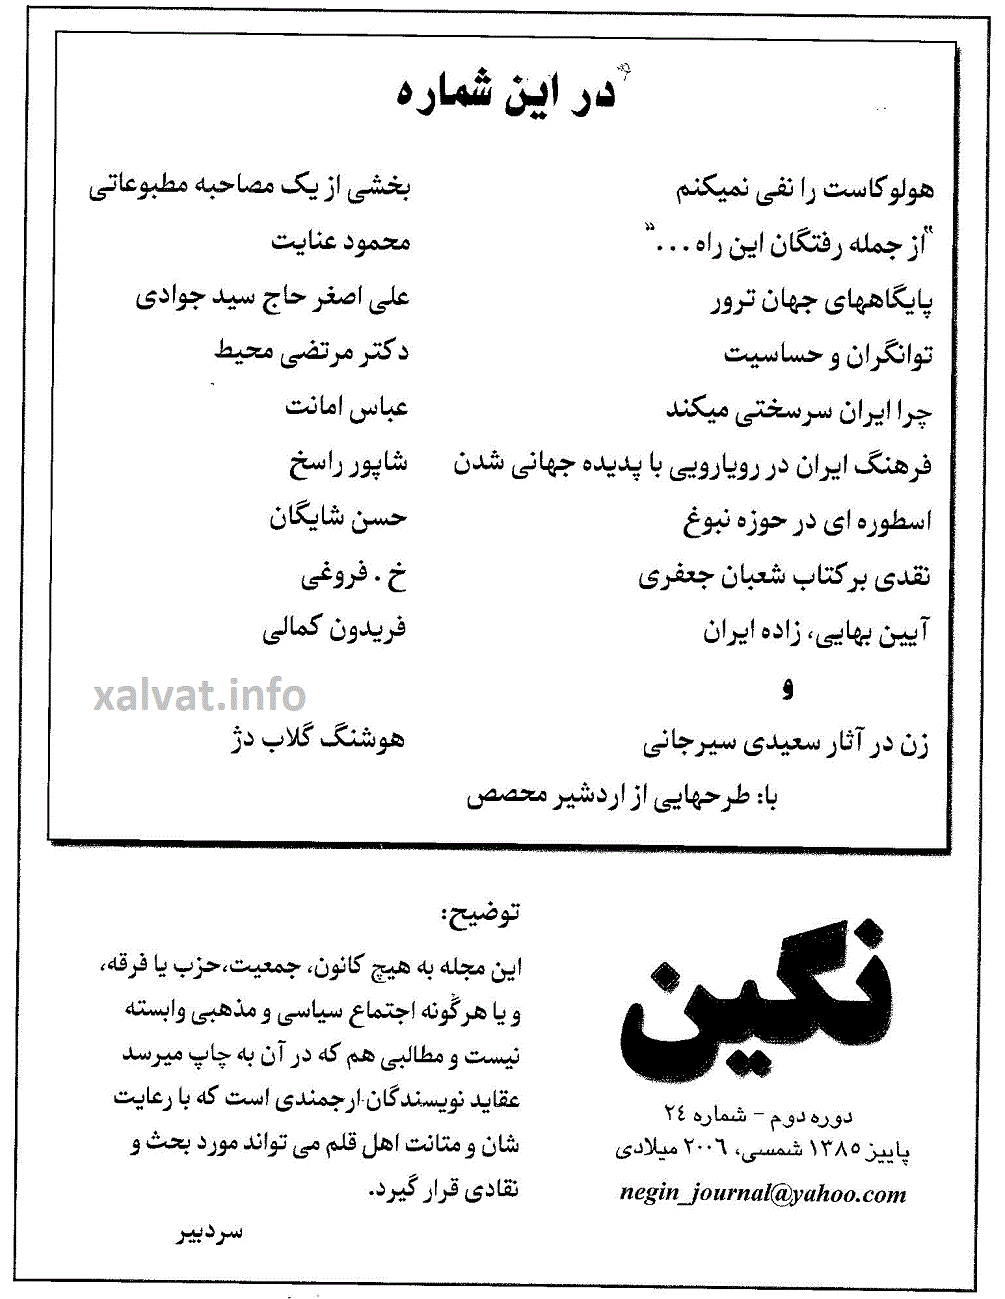 در این شماره
هولوکاست را نفی نمیکنم بخشی از یک مصاحبه مطبوعاتی
"از جمله رفتگان این راه ..." محمود عنایت
پایگاههای جهان ترور علی اصغر حاج سید جوادی
توانگران و حساسیت دکتر مرتضی محیط
چرا ایران سرسختی میکند عباس امانت
فرهنگ ایران در رویارویی با پدیده جهانی شدن شاپور راسخ
اسطوره ای در حوزه نبوغ حسن شایگان
نقدی بر کتاب شعبان جعفری خ . فروغی
آیین بهایی، زاده ایران فریدون کمالی
و
xalvat.info
زن در آثار سعیدی سیرجانی هوشنگ گلاب دژ
با: طرحهایی از اردشیر محصص
نگین
دوره دوم - شماره ٢٤
پاییز ١٣٨٥ شمسی، ٢٠٠٦ میلادی
negin_journal@yahoo.com
توضیح:
این مجله به هیچ کانون، جمعیت،حزب یا فرقه،
و یا هرگونه اجتماع سیاسی و مذهبی وابسته
نیست و مطالبی هم که در آن به چاپ میرسد
عقاید نویسندگان ارجمندی است که با رعایت
شان و متانت اهل قلم می تواند مورد بحث و
نقادی قرار گیرد.
سردبیر